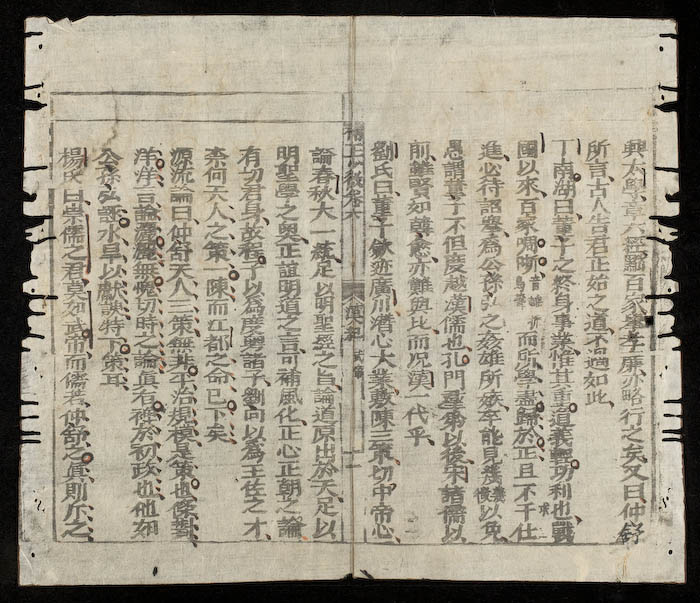 興太學章六經黜百家擧孝廉亦略行之矣又曰仲舒
所言古人告君正如之道不過如此
丁南湖曰董子之終身事業惟其重道義輕功利也戰
國以來百家啁哳而所學盡歸於正且不干仕
進必待詔擧爲公孫弘之姦雄所嫉卒能見幾以免
愚謂董子不但度越漢儒也孔門羣弟以後宋諸儒以
前雖賢如韓愈亦難與比而况漢一代乎
劉氏曰董子歛迹廣川潛心大業敷陳三策切中帝心
論春秋大一統足以明聖經之旨論道原出於天足以
明聖學之奧正誼明道之言可補風化正心正朝之論
有切君身故程子以爲度越諸子劉向以爲王佐之才
柰何天人之策一陳而江都之命已下矣
源流論曰仲舒天人三策無非平治規模是策也條對
洋洋言論灑灑無愧切時之論眞有裨於初政也他如
公孫弘課水旱以獻諛特下策耳
楊氏曰崇儒之君莫如武帝而儒者仲舒之眞則斥之